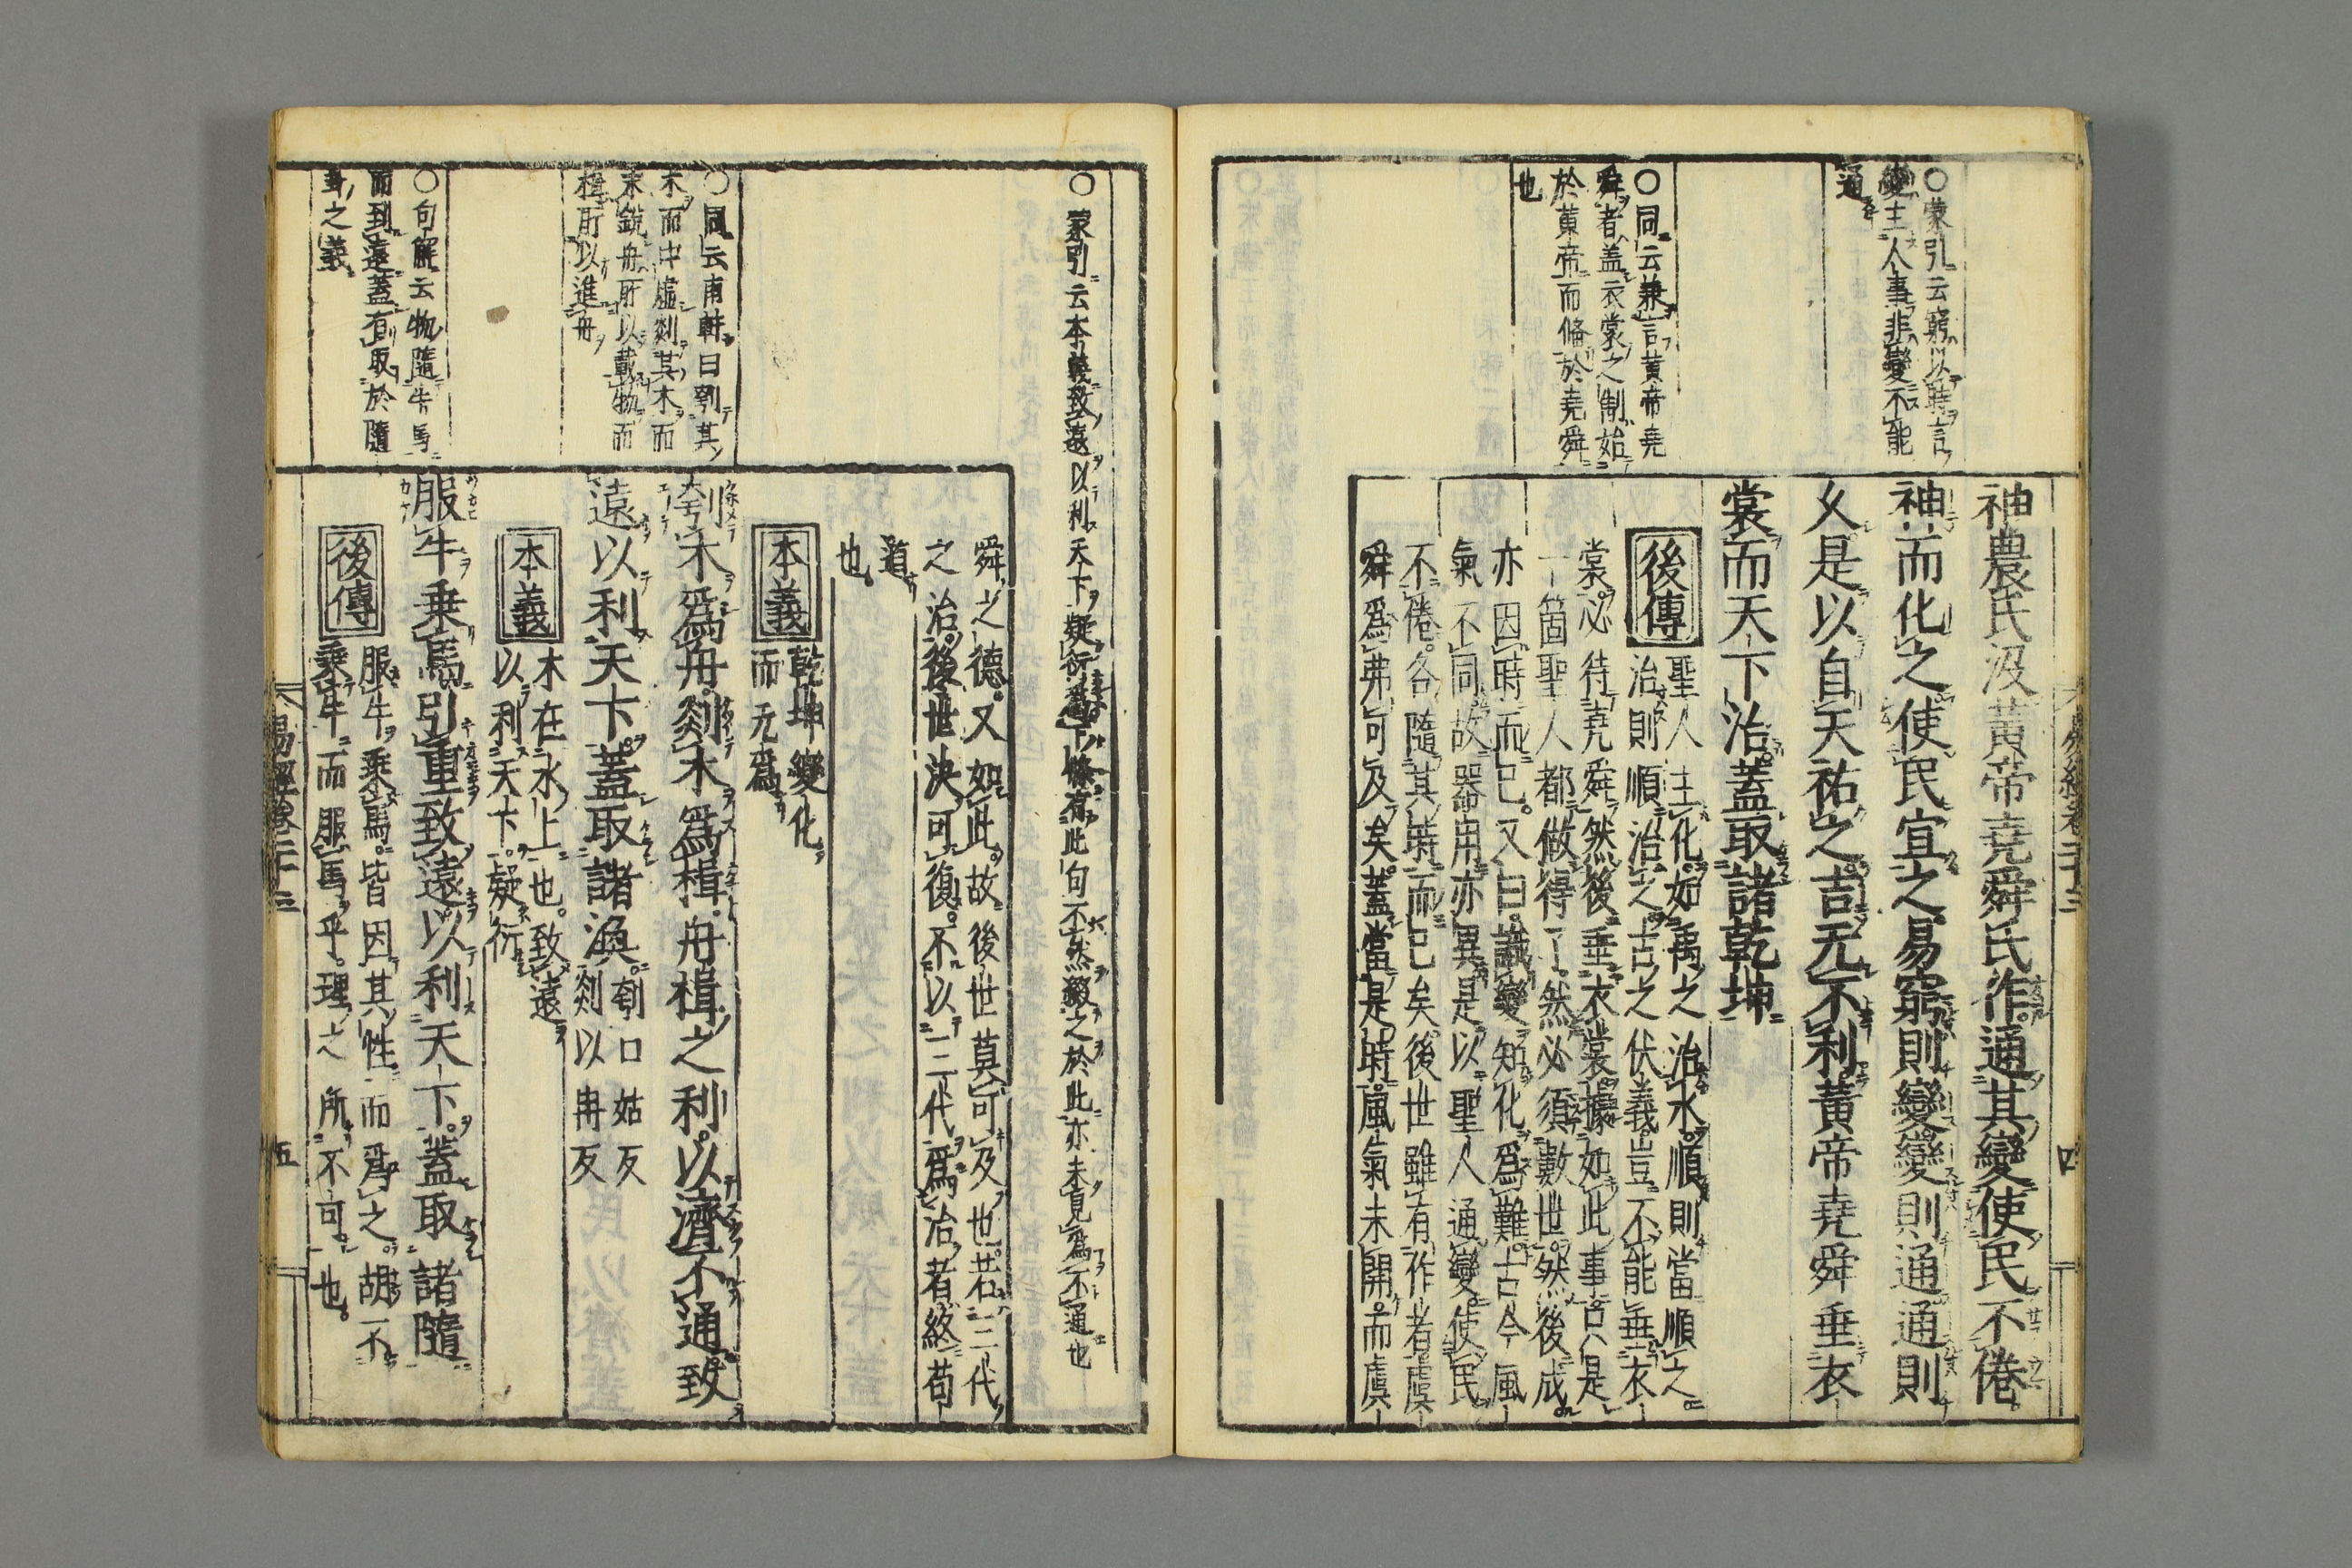 ○蒙引云窮以時言
變主人事非變不能
通
○同云兼言黄帝堯
舜者盖衣裳之制始
於黄帝而脩於堯舜
也
神農氏沒黃帝堯舜氏作通其變使民不倦
神而化之使民宜之易窮則變變則通通則
久是以自天祐之吉无不利黃帝堯舜垂衣
裳而天下治蓋取諸乾坤
後傳
聖人主化如禹之治水順則當順之
治則順治之古之伏羲豈不能垂衣
裳必待堯舜然後垂衣裳據如此事只是
一箇聖人都做得了然必須數世然後成
亦因時而已又曰識變知化爲難古今風
氣不同故器用亦異是以聖人通變使民
不倦各隨其時而已矣後世雖有作者虞
舜爲弗可及矣蓋當是時風氣未開而虞
四
○蒙引云本義致遠以利天下疑衍下條有此句不然綴之於此亦未見爲不通也
○同云南軒曰刳其
木而中虛剡其木而
末銳舟所以載物而
楫所以進舟
○句解云物隨牛馬
而到遠蓋有取於隨
之義
舜之德又如此故後世莫可及也若三代
之治後世決可復不以三代爲治者終苟
道
也
本義
乾坤變化
而无爲
刳木爲舟剡木爲楫舟楫之利以濟不通致
遠以利天下蓋取諸渙
刳口姑反
剡以冉反
本義
木在水上也致遠
以利天下疑衍
服牛乘馬引重致遠以利天下蓋取諸隨
後傳
服牛乘馬皆因其性而爲之胡不
乘牛而服馬乎理之所不可也
易經卷二十三
五